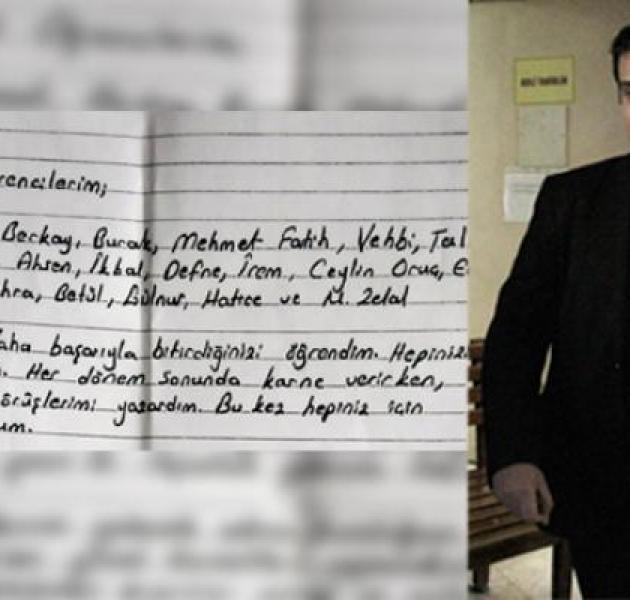 rencilerim;
Berkay, Burak, Mehmet Fatih, Vehbi, Tal
Ahsen, İkbal, Defne, İrem, Ceylin Oruç, E
hra, Betül, Gülnur, Hatice ve M. Zelal
aha başarıyla bitirdiğinizi öğrendim. Hepiniz
Her dönem sonunda karne verirken,
örüşlerimi yazardım. Bu kez hepiniz için
um.